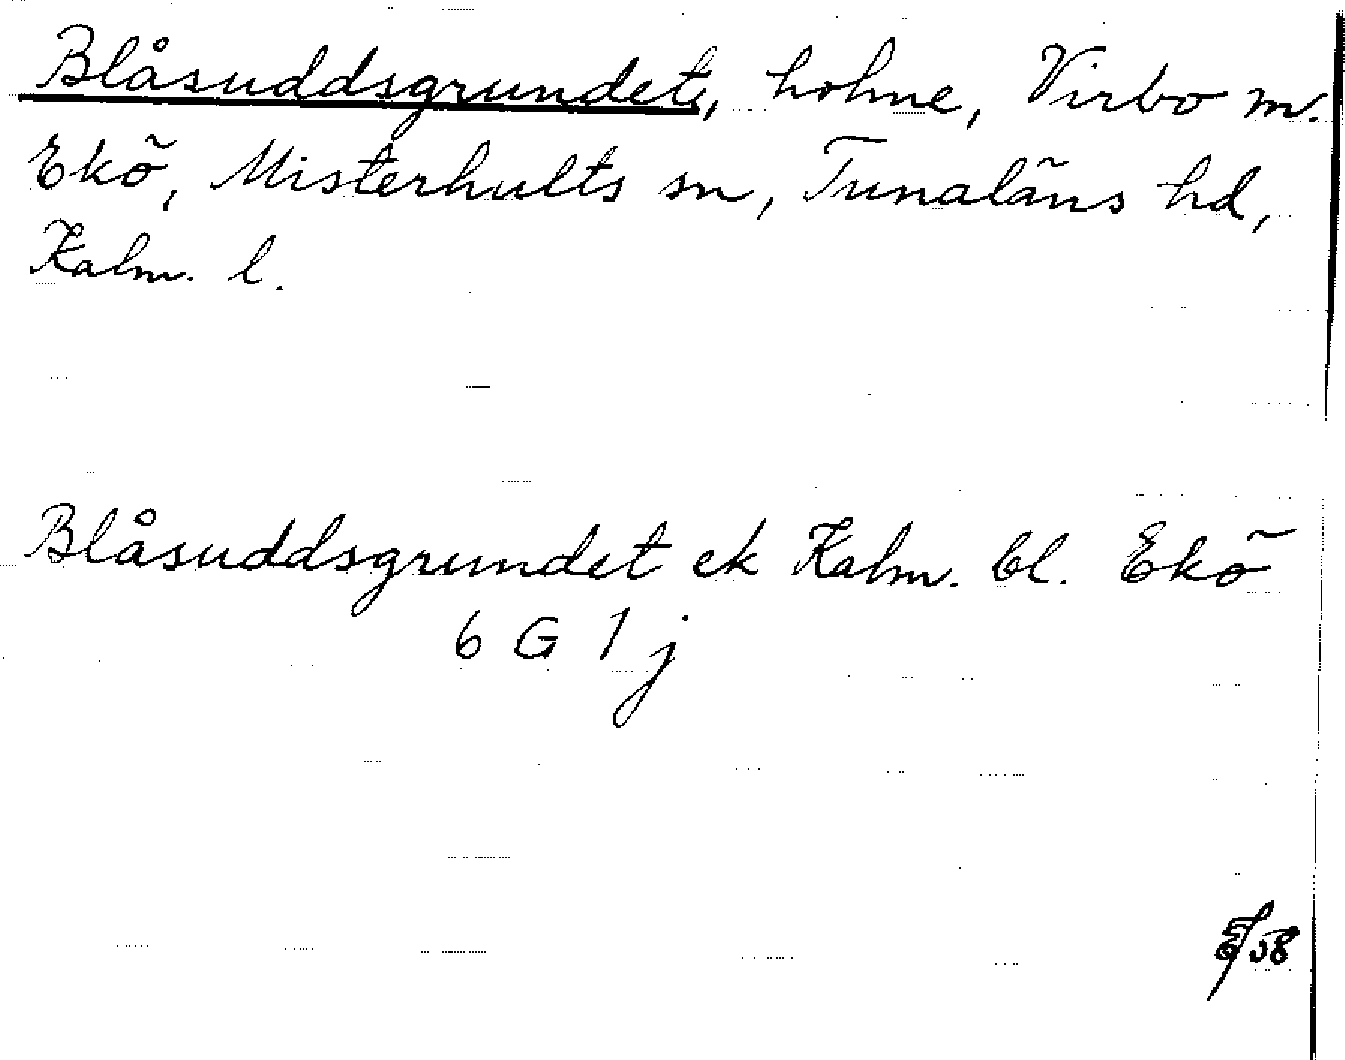 Blåsuddsgrundet, holme, Virbo m.
Ekö, Misterhults sn, Tunaläns hd,
Kalm. l.
Blåsuddsgrundet ek Kalm. bl. Ekö
6 G 1 j
58